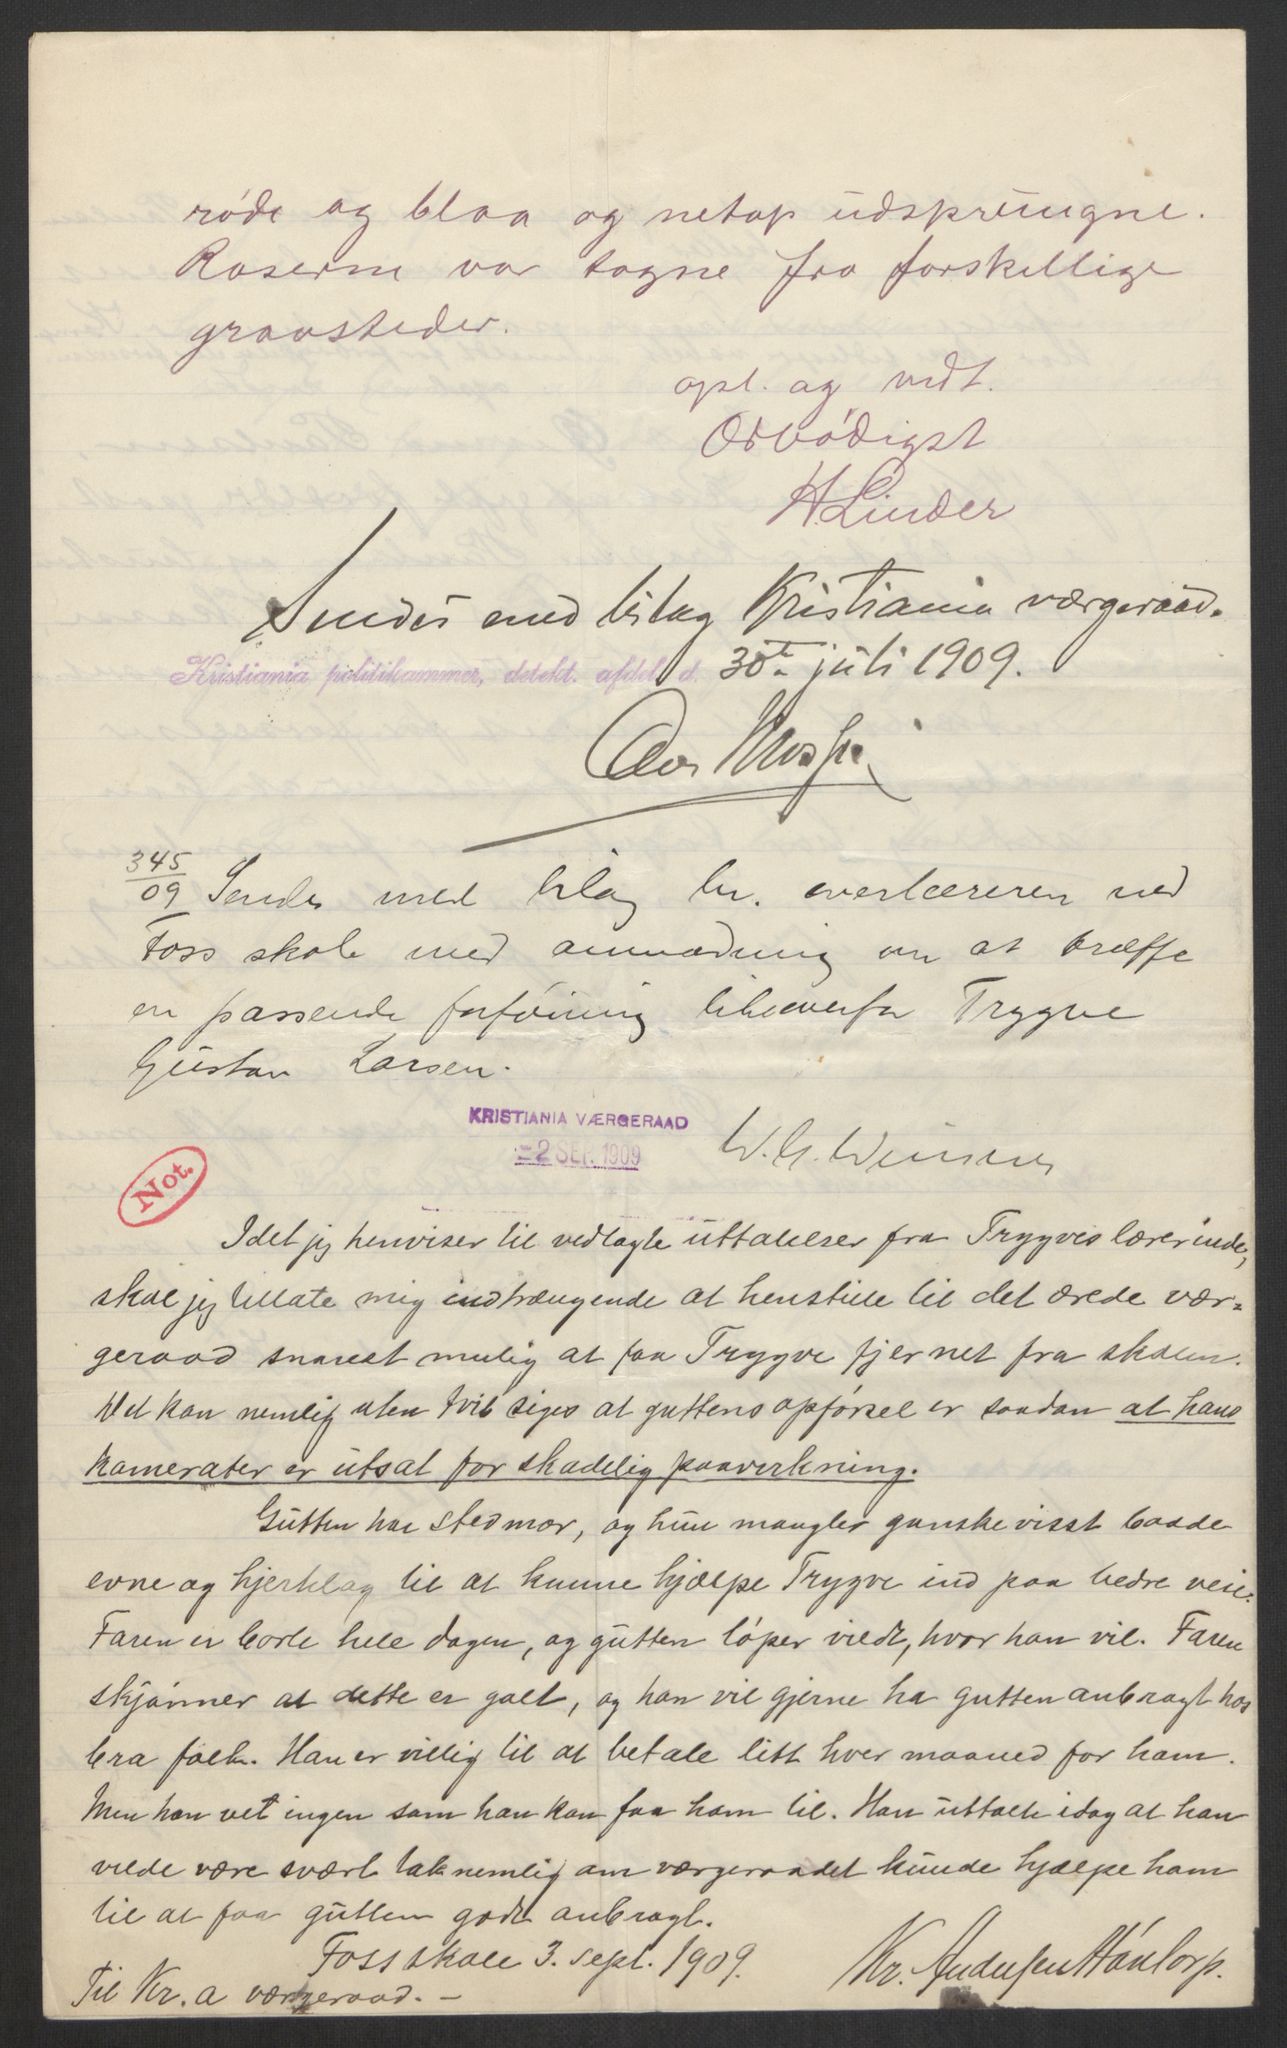 røde og blaa og netop udsprungne.
Roserne var tagne fra forskellige
gravsteder.
opl. og vedt.
Ærbødigst
H. Linder
Sendes med bilag Kristiania værgeraad.
Kristiania politikammer, detekt. afdel. d. 30te juli 1909.
345
09 Sendes med bilag hr. overlæreren ved
Foss skole med anmodning om at træffe
en passende forføining likeoverfor Trygve
Gustav Larsen.
KRISTIANIA VÆRGERAAD
-2 SEP. 1909
Not.
Idet jeg henviser til vedlagte uttalelser fra Trygves lærerinde,
skal jeg tillate mig indtrængende at henstille til det ærede vær-
geraad snarest mulig at faa Trygve fjernet fra skolen.
Det kan nemlig uten tvil siges at guttens opførsel er saadan at hans
kamerater er utsat for skadelig paavirkning.
Gutten har stedmor, og hun mangler ganske visst baade
evne og hjertelag til at kunne hjælpe Trygve ind paa bedre veie.
Faren er borte hele dagen, og gutten løper vildt, hvor han vil. Faren
skjønner at dette er galt, og han vil gjerne ha gutten anbragt hos
bra folk. Han er villig til at betale litt hver maaned for ham.
Men han vet ingen som han kan faa ham til. Han uttalte idag at han
vilde være svært taknemlig om værgeraadet kunde hjælpe ham
til at faa gutten godt anbragt.
Foss skole 3. sept. 1909.
Til Kr.a værgeraad. –